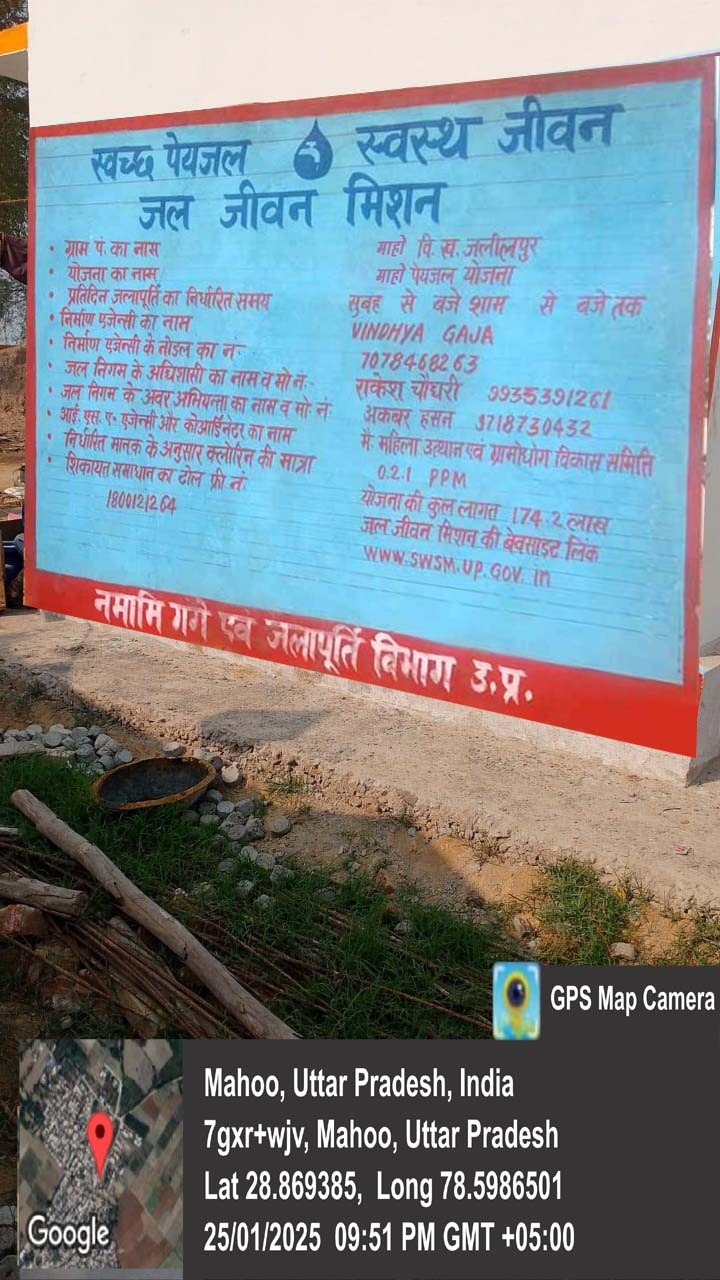 स्वच्छ पेयजल स्वस्थ जीवन
जल जीवन मिशन
• ग्राम पं. का नाम माहो वि.ख. जलीलपुर
• योजना का नाम माहो पेयजल योजना
• प्रतिदिन जलापूर्ति का निर्धारित समय सुबह से बजे शाम से बजे तक
• निर्माण एजेन्सी का नाम VINDHYA GAJA
• निर्माण एजेन्सी के नोडल का नं:- 7078468263
• जल निगम के अधिशासी का नाम व मो नं:- राकेश चौधरी 9935391261
• जल निगम के अवर अभियन्ता का नाम व मो नं: अकबर हसन 9718730432
• आई. एस. ए. एजेन्सी और कोआर्डिनेटर का नाम मै. महिला उत्थान एवं ग्रामोधोग विकास समिति
• निर्धारित मानक के अनुसार क्लोरिन की मात्रा 0.2.1 PPM
• शिकायत समाधान का टोल फ्री नं. योजना की कुल लागत 174.2 लाख
1800121264 जल जीवन मिशन की बेवसाइट लिंक
WWW.SWSM.UP.GOV.in
नमामि गंगे एवं जलापूर्ति विभाग उ.प्र.
GPS Map Camera
Mahoo, Uttar Pradesh, India
7gxr+wjv, Mahoo, Uttar Pradesh
Lat 28.869385, Long 78.5986501
25/01/2025 09:51 PM GMT +05:00
Google